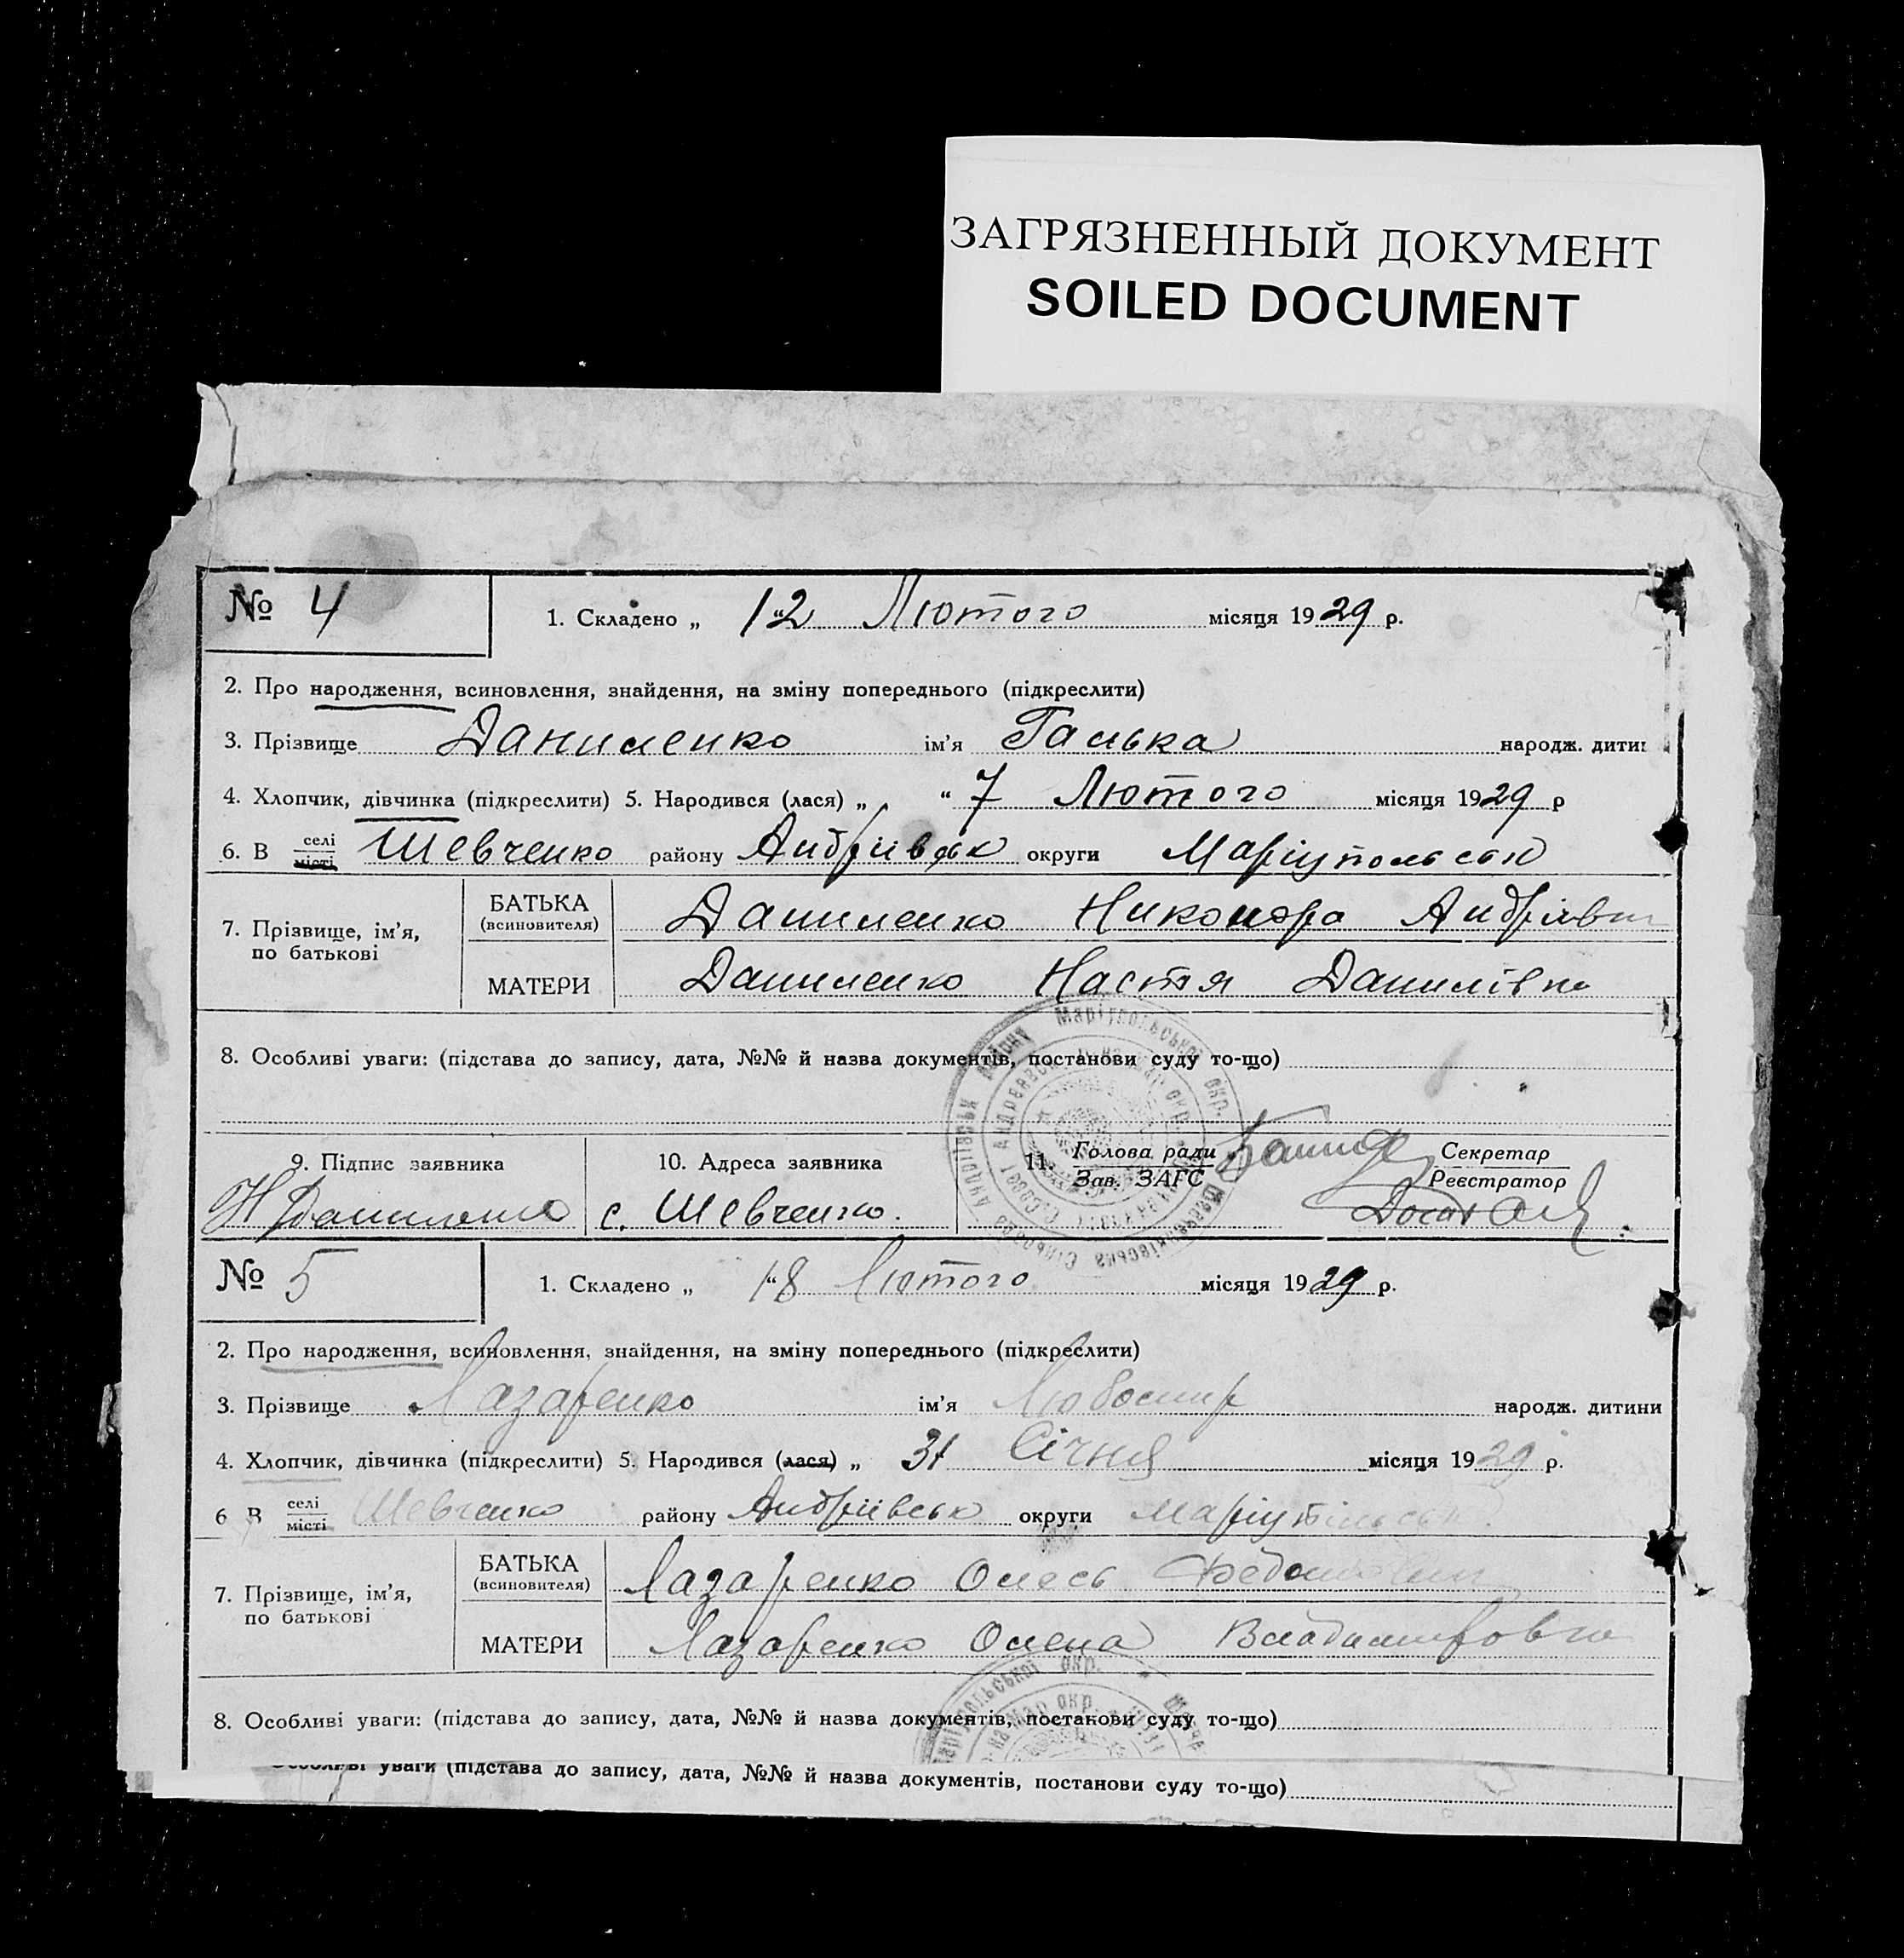 ЗАГРЯЗНЕННЫЙ ДОКУМЕНТ
SOILED DOCUMENT
№ 4
1. Складено „ 12 “ Лютого місяця 1929 р.
2. Про народження, всиновлення, знайдення, на зміну попереднього (підкреслити)
3. Прізвище Даниленко ім'я Галька народж. дити
4. Хлопчик, дівчинка (підкреслити) 5. Народився (лася) „ “ 7 Лютого місяця 1929 р
6. В селі місті Шевченко району Андріівськ округи Маріупольськ
7. Прізвище, ім'я, по батькові
БАТЬКА (всиновителя) Даниленко Никонора Андрієви
МАТЕРИ Даниленко Настя Данилівна
8. Особливі уваги: (підстава до запису, дата, №№ й назва документів, постанови суду то-що)
9. Підпис заявника 10. Адреса заявника 11. Голова ради Зав. ЗАГС Секретар Реєстратор
Н Даниленко с. Шевченко.
№ 5
1. Складено „ 18 “ Лютого місяця 1929 р.
2. Про народження, всиновлення, знайдення, на зміну попереднього (підкреслити)
3. Прізвище Лазаренко ім'я Любомир народж. дитини
4. Хлопчик, дівчинка (підкреслити) 5. Народився (лася) „ 31 Січня місяця 1929 р.
6 В селі місті Шевченко району Андріівськ округи Маріупільськ
7. Прізвище, ім'я, по батькові
БАТЬКА (всиновителя) Лазаренко Олесь
МАТЕРИ Лазаренко Олена Владимировна
8. Особливі уваги: (підстава до запису, дата, №№ й назва документів, постанови суду то-що)
уваги (підстава до запису, дата, №№ й назва документів, постанови суду то-що)